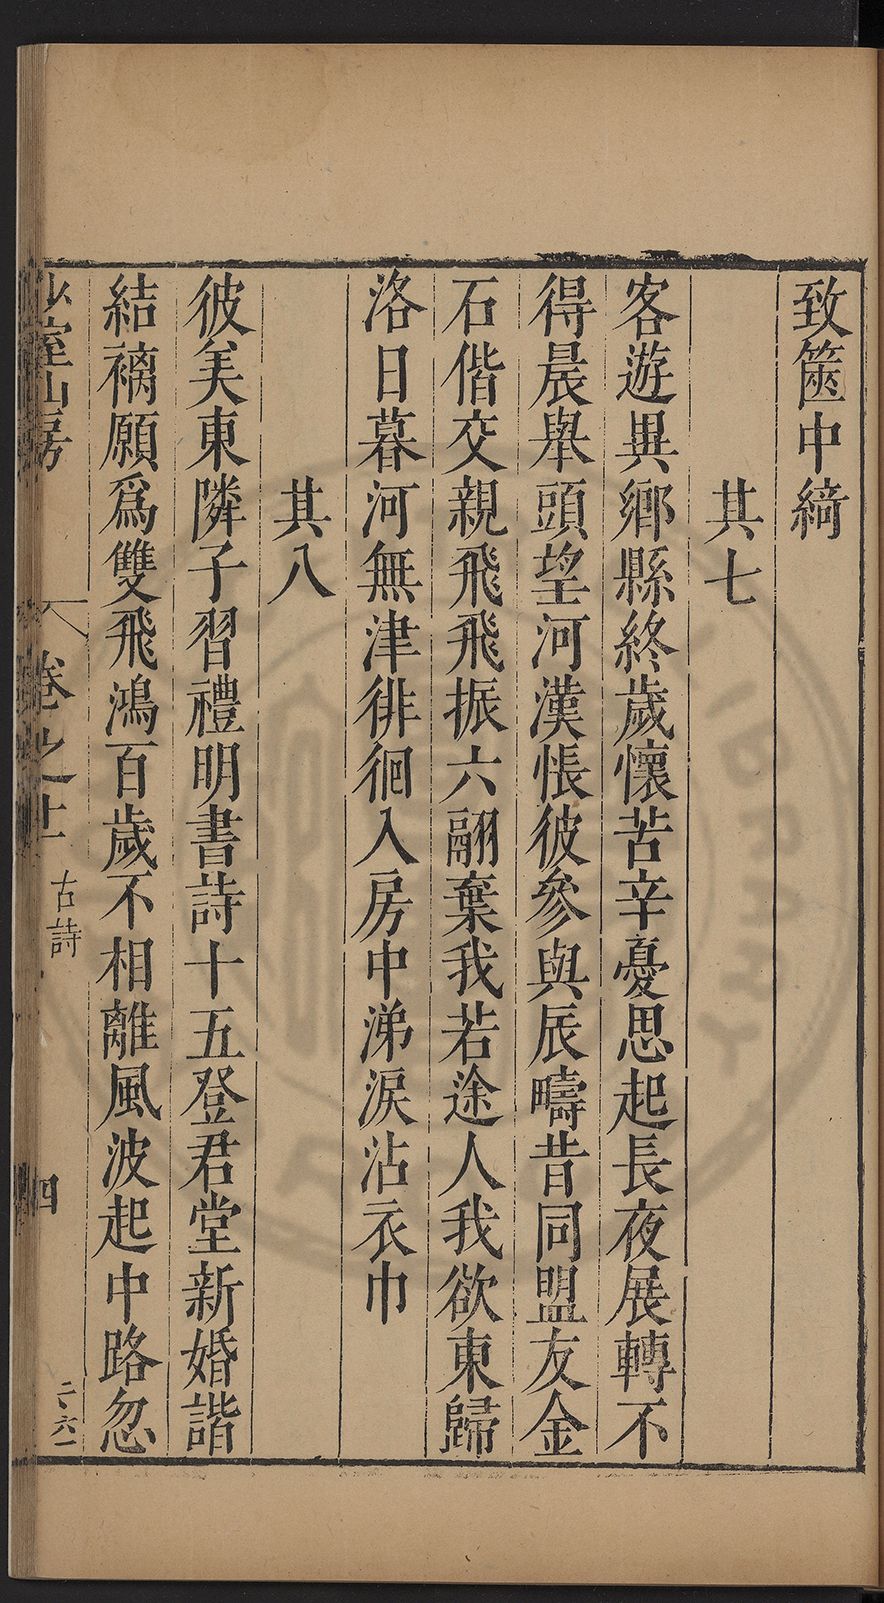 致篋中綺
其七
客遊異鄉縣終歲懷苦辛憂思起長夜展轉不
得晨舉頭望河漢悵彼參與辰疇昔同盟友金
石偕交親飛飛振六翮棄我若途人我欲東歸
洛日暮河無津徘徊入房中涕淚沾衣巾
其八
彼美東隣子習禮明書詩十五登君堂新婚諧
結褵願爲雙飛鴻百歲不相離風波起中路忽
少室山房
卷之上
古詩
四
二六一